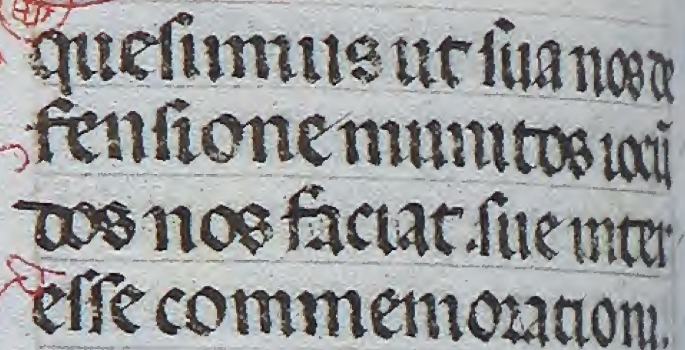 quesumus ut sua nos de
fensione munitos iocū
dos nos faciat. sue inter
esse commemorationi.